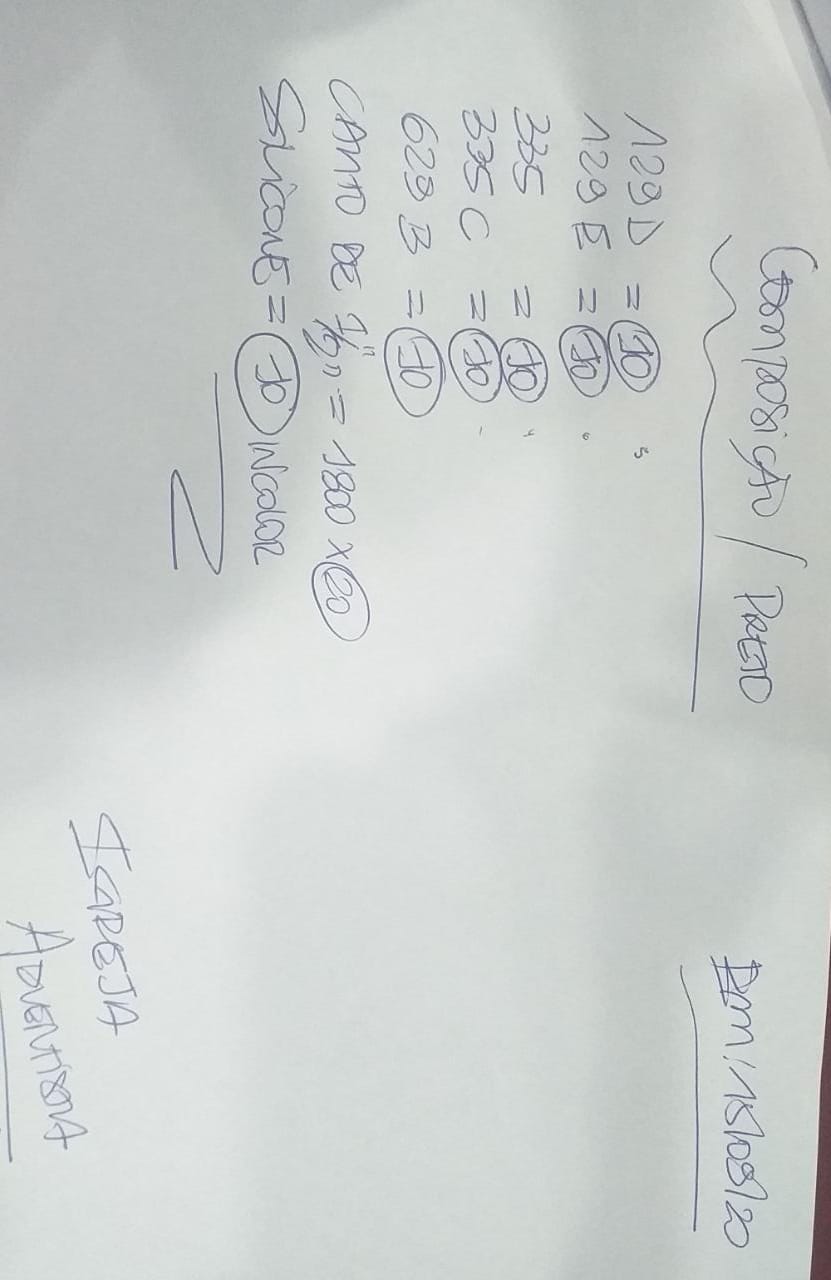 Composição / Preto
Em, 15/08/20
129 D = 10
129 E = 10
335 = 10
335 C = 10
629 B = 10
CANTO DE 1/2" = 1800 x 20
Silicone = 10 INColor
IGREJA
ADVENTISTA